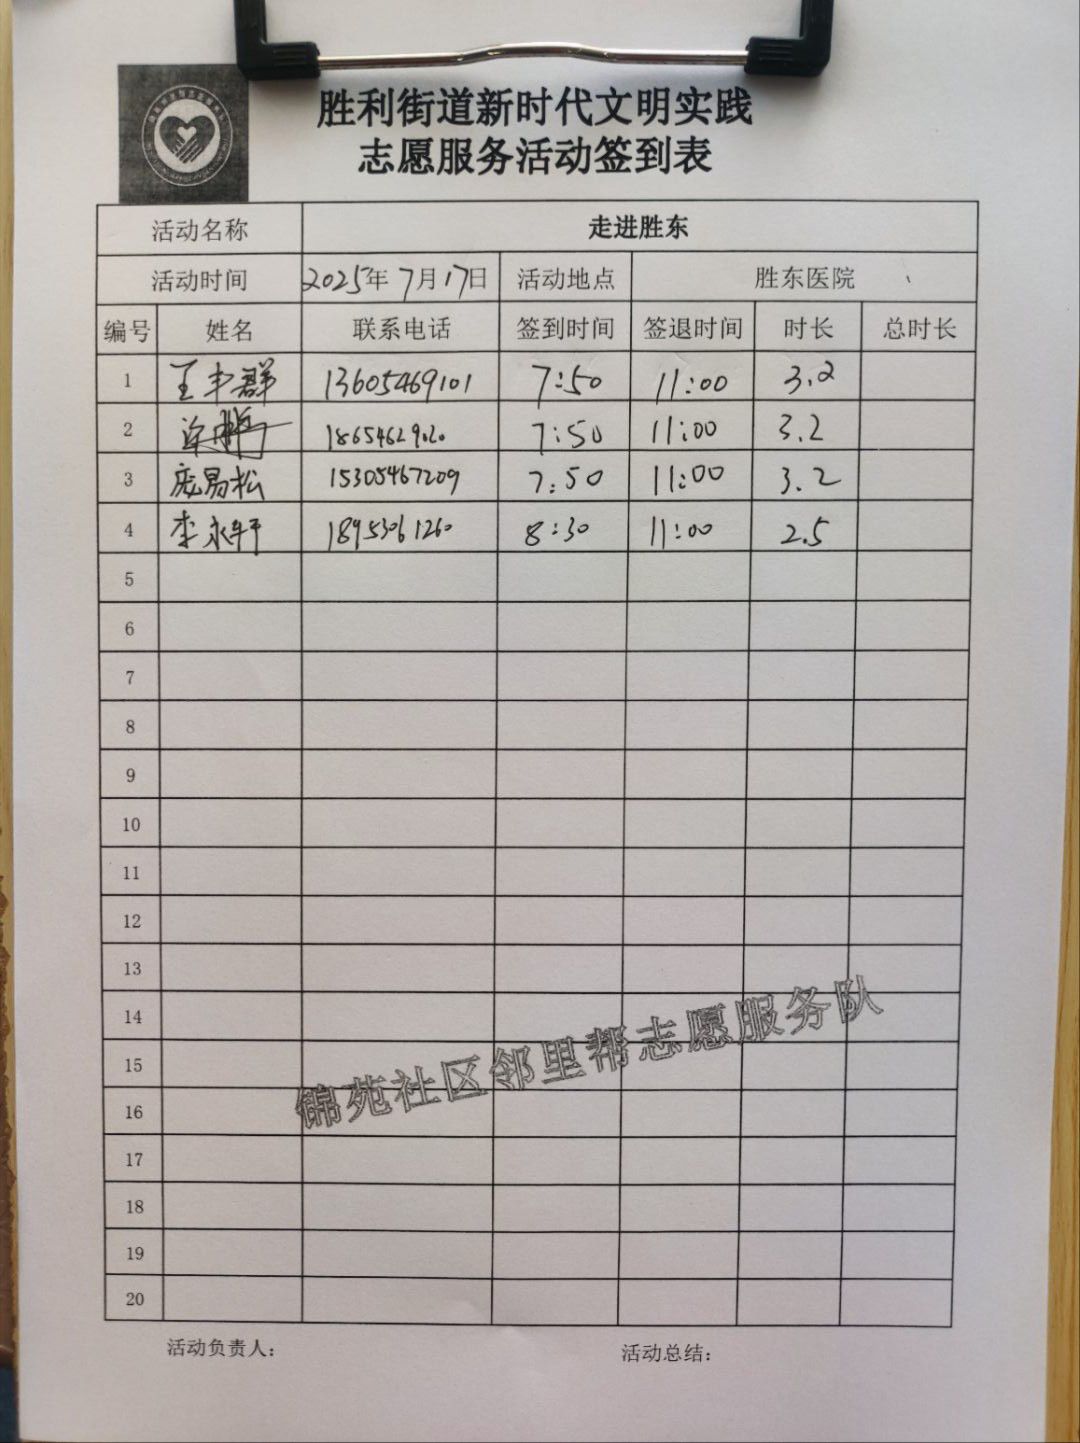 胜利街道新时代文明实践
志愿服务活动签到表
活动名称 走进胜东
活动时间 2025年7月17日 活动地点 胜东医院
编号 姓名 联系电话 签到时间 签退时间 时长 总时长
1 王丰群 13605469101 7:50 11:00 3.2
2 18654629020 7:50 11:00 3.2
3 庞易松 15305467209 7:50 11:00 3.2
4 李永轩 18953061260 8:30 11:00 2.5
5
6
7
8
9
10
11
12
13
14
15
16
17
18
19
20
锦苑社区邻里帮志愿服务队
活动负责人: 活动总结: